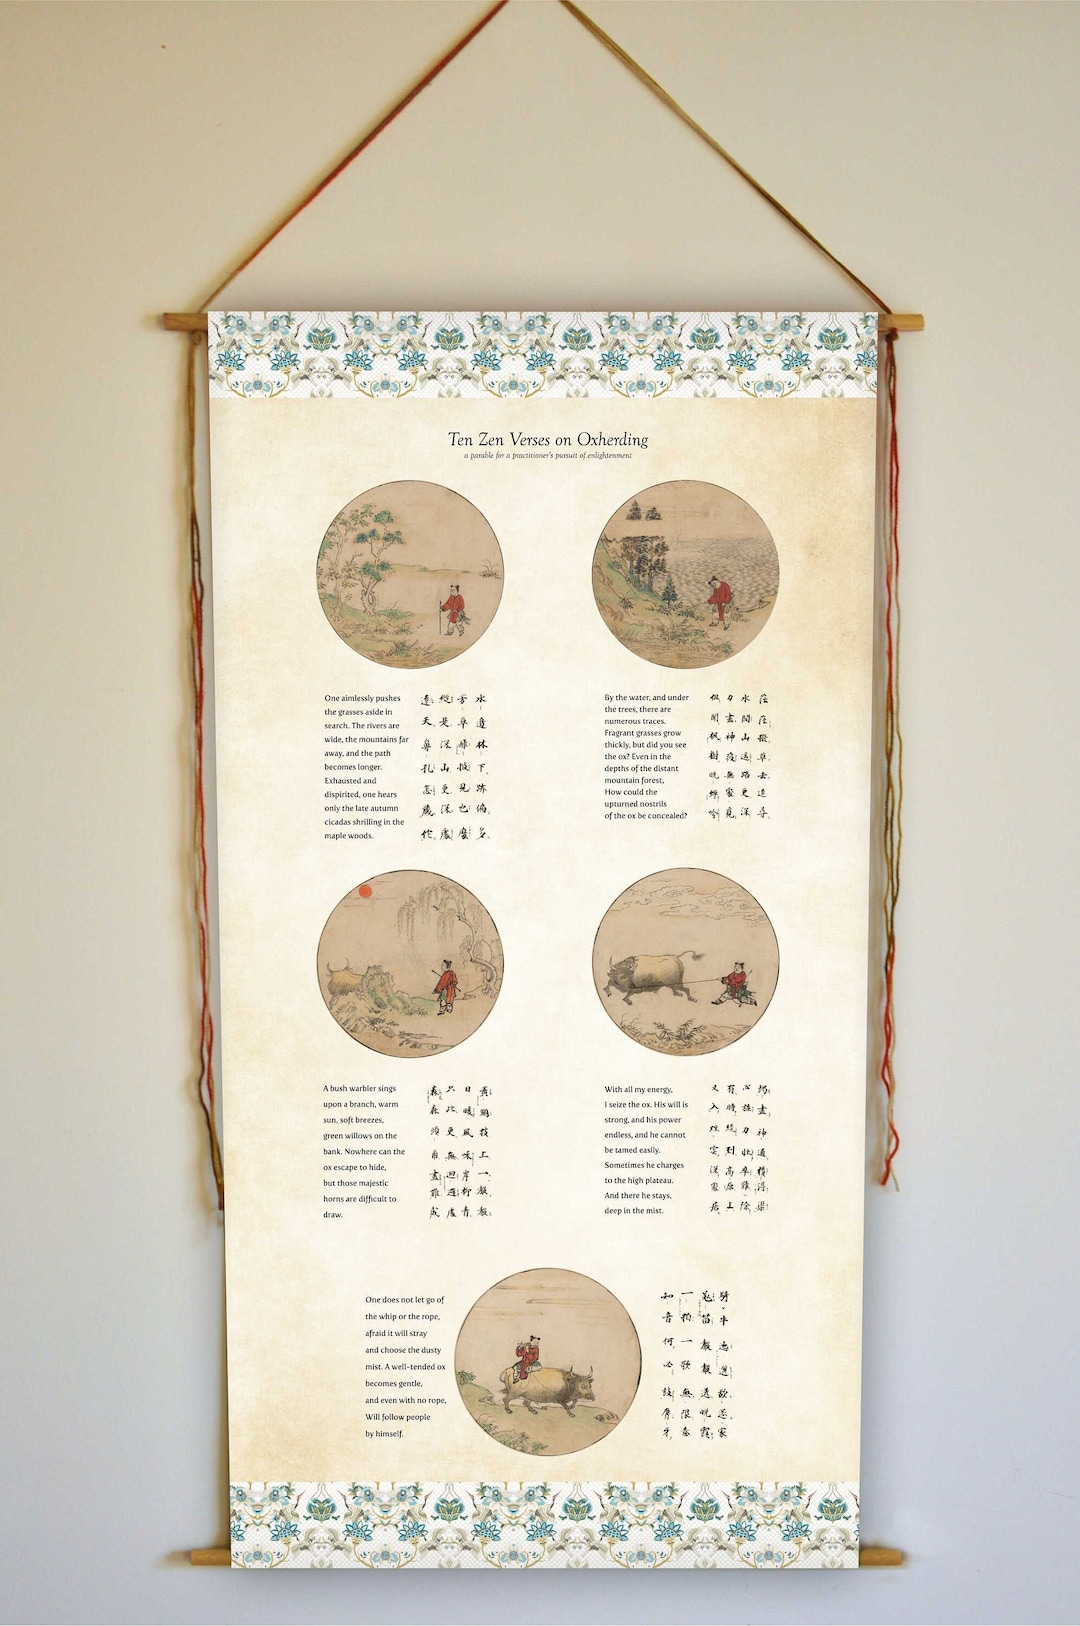 Ten Zen Verses on Oxherding
a parable for a practitioner's pursuit of enlightenment
One aimlessly pushes
the grasses aside in
search. The rivers are
wide, the mountains far
away, and the path
becomes longer.
Exhausted and
dispirited, one hears
only the late autumn
cicadas shrilling in the
maple woods.
水邊林下跡偏多
芳草離披見也麼
縱是深山更深處
遼天鼻孔怎藏佗
By the water, and under
the trees, there are
numerous traces.
Fragrant grasses grow
thickly, but did you see
the ox? Even in the
depths of the distant
mountain forest,
How could the
upturned nostrils
of the ox be concealed?
茫茫撥草去追尋
水闊山遙路更深
力盡神疲無處覓
但聞楓樹晚蟬吟
A bush warbler sings
upon a branch, warm
sun, soft breezes,
green willows on the
bank. Nowhere can the
ox escape to hide,
but those majestic
horns are difficult to
draw.
黃鸝枝上一聲聲
日暖風和岸柳青
只此更無迴避處
森森頭角畫難成
With all my energy,
I seize the ox. His will is
strong, and his power
endless, and he cannot
be tamed easily.
Sometimes he charges
to the high plateau.
And there he stays,
deep in the mist.
竭盡神通獲得渠
心強力壯卒難除
有時纔到高原上
又入煙雲深處居
One does not let go of
the whip or the rope,
afraid it will stray
and choose the dusty
mist. A well-tended ox
becomes gentle,
and even with no rope,
Will follow people
by himself.
騎牛迤邐欲還家
羌笛聲聲送晚霞
一拍一歌無限意
知音何必鼓唇牙